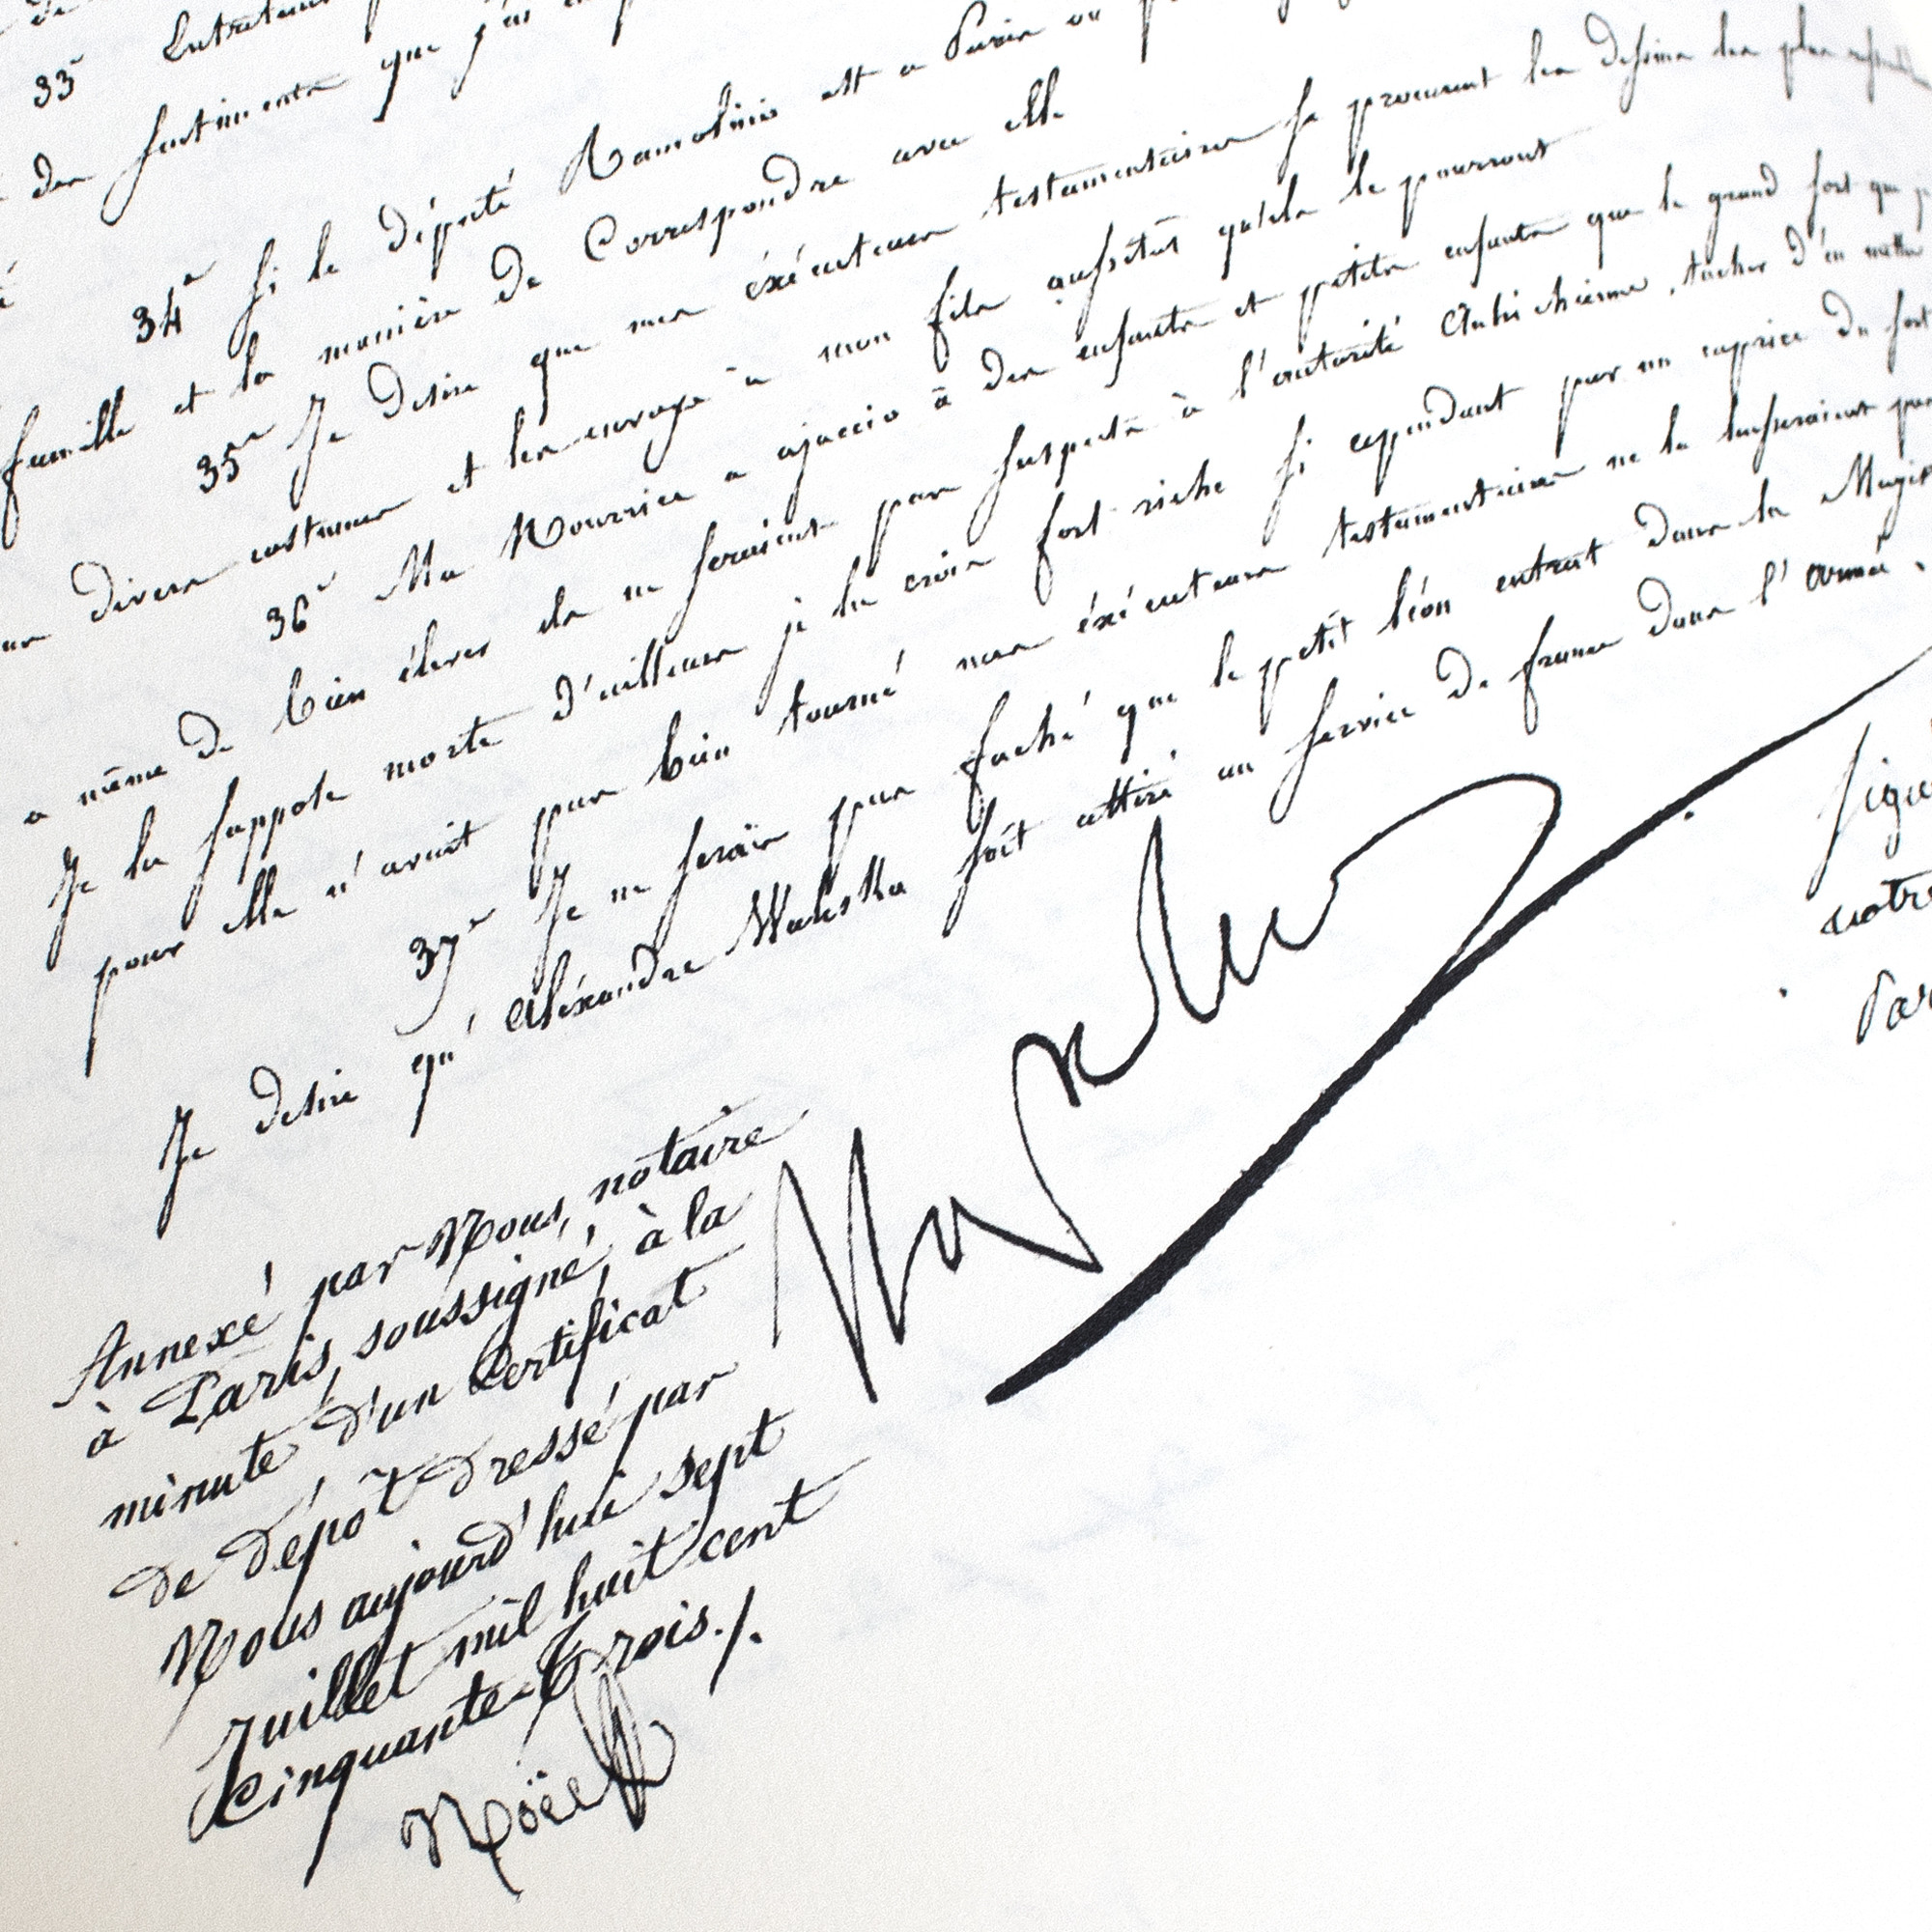 33° Entretenir
des sentiments que j'ai
34° si le député Ramolino est a Paris ou
famille et la manière de Correspondre avec elle
35° Je desire que mes éxécuteurs testamentaires se procurent les dessins les plus
divers costumes et les envoye à mon fils aussitôt qu'ils le pourront
36° Ma Nourrice a ajaccio à des enfants et petits enfants que le grand sort que
a même de bien élever ils ne seraient pas suspects à l'autorité Autrichienne, tacher d'en mettre
Je la suppose morte d'ailleurs je la crois fort riche si cependant par un caprice du sort
pour elle n'avait pas bien tourné mes éxécuteurs testamentaires ne la laisseraient pas
37° Je ne serais pas faché que le petit léon entrat dans la
Je desire qu'Aléxandre Waleska soit attiré au service de france dans l'armée.
Napoleon
notre
Annexé par Nous, notaire
à Paris, soussigné, à la
minute d'un Certificat
de dépôt dressé par
Nous aujourd'hui sept
Juillet mil huit cent
Cinquante-Trois./.
Noël